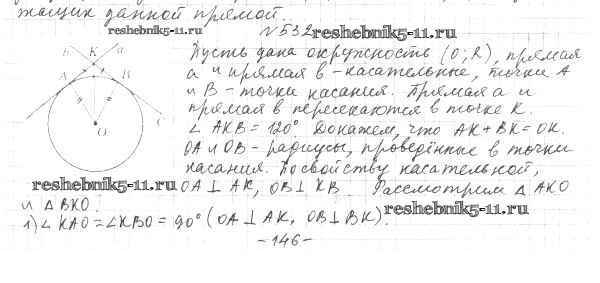 жащих данной прямой.
reshebnik5-11.ru
№532
reshebnik5-11.ru
Пусть дана окружность (O; R), прямая
a и прямая b - касательные, точки A
и B - точки касания. Прямая a и
прямая b пересекаются в точке K.
∠ AKB = 120°. Докажем, что AK + BK = OK.
OA и OB - радиусы, проведённые в точки
касания. По свойству касательной,
reshebnik5-11.ru
OA ⊥ AK, OB ⊥ KB. Рассмотрим △ AKO
и △ BKO.
reshebnik5-11.ru
1) ∠ KAO = ∠ KBO = 90° (OA ⊥ AK, OB ⊥ BK).
-146-
b K a
A B
O
C